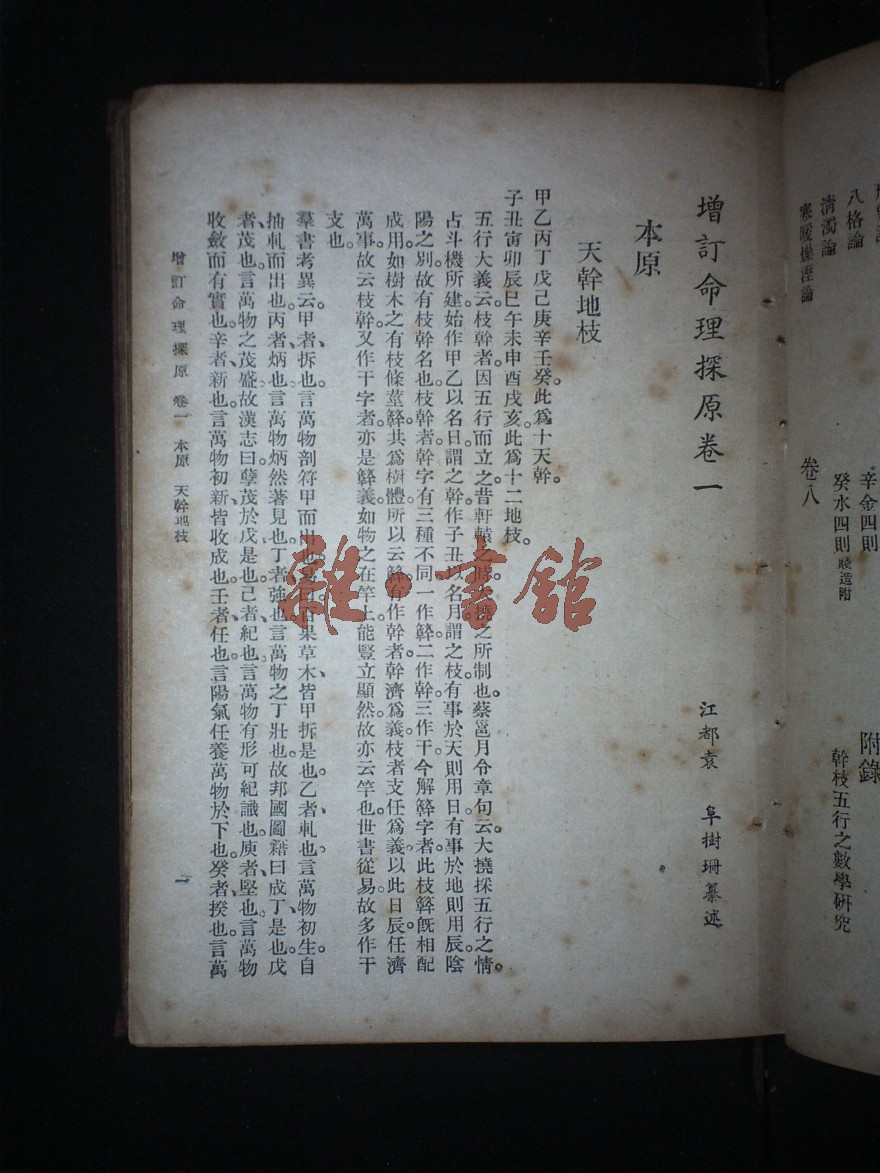 增訂命理探原卷一
江都袁 阜樹珊纂述
本原
天幹地枝
甲乙丙丁戊己庚辛壬癸。此爲十天幹。
子丑寅卯辰巳午未申酉戌亥。此爲十二地枝。
五行大義云。枝幹者。因五行而立之。昔軒轅之時。大撓之所制也。蔡邕月令章句云。大撓採五行之情。
占斗機所建。始作甲乙以名日。謂之幹。作子丑以名月。謂之枝。有事於天則用日。有事於地則用辰。陰
陽之別。故有枝幹名也。枝幹者。幹字有三種不同。一作榦。二作幹。三作干。今解榦字者。此枝榦旣相配
成用。如樹木之有枝條莖榦。共爲樹體。所以云榦。有作幹者。幹濟爲義。枝者支任爲義。以此日辰任濟
萬事。故云枝幹。又作干字者。亦是榦義。如物之在竿上。能豎立顯然。故亦云竿也。世書從易。故多作干
支也。
羣書考異云。甲者、拆也。言萬物剖符甲而出也。易曰百果草木、皆甲拆是也。乙者、軋也。言萬物初生自
抽軋而出也。丙者、炳也。言萬物炳然著見也。丁者、強也。言萬物之丁壯也。故邦國圖籍曰成丁是也。戊
者、茂也。言萬物之茂盛。故漢志曰孽茂於戊是也。己者、紀也。言萬物有形可紀識也。庚者、堅也。言萬物
收斂而有實也。辛者、新也。言萬物初新皆收成也。壬者、任也。言陽氣任養萬物於下也。癸者、揆也。言萬
增訂命理探原 卷一 本原 天幹地枝
一
八格論
清濁論
寒暖燥溼論
卷八
辛金四則
癸水四則 賤造附
附錄
幹枝五行之數學研究
雜·書館